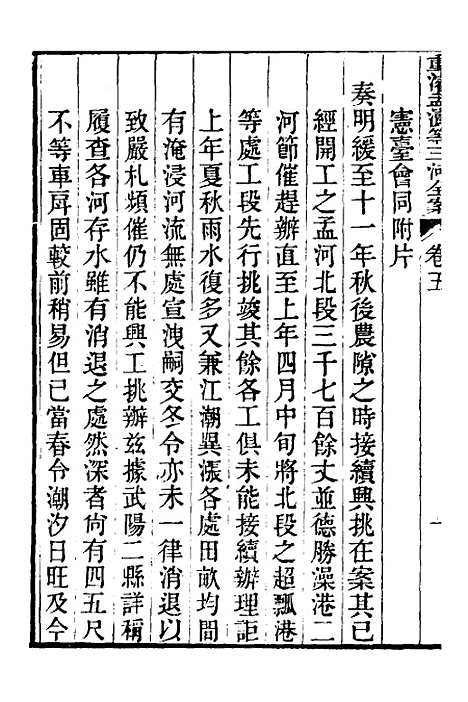 重濬孟瀆等三河全案　卷五　一
憲臺會同附片
奏明緩至十一年秋後農隙之時接續興挑在案其已
經開工之孟河北段三千七百餘丈並德勝澡港二
河節催趕辦直至上年四月中旬將北段之超瓢港
等處工段先行挑竣其餘各工俱未能接續辦理詎
上年夏秋雨水復多又兼江潮異漲各處田畝均間
有淹浸河流無處宣洩嗣交冬令亦未一律消退以
致嚴札頻催仍不能興工挑辦兹據武陽二縣詳稱
履查各河存水雖有消退之處然深者尙有四五尺
不等車戽固較前稍易但已當春令潮汐日旺及今